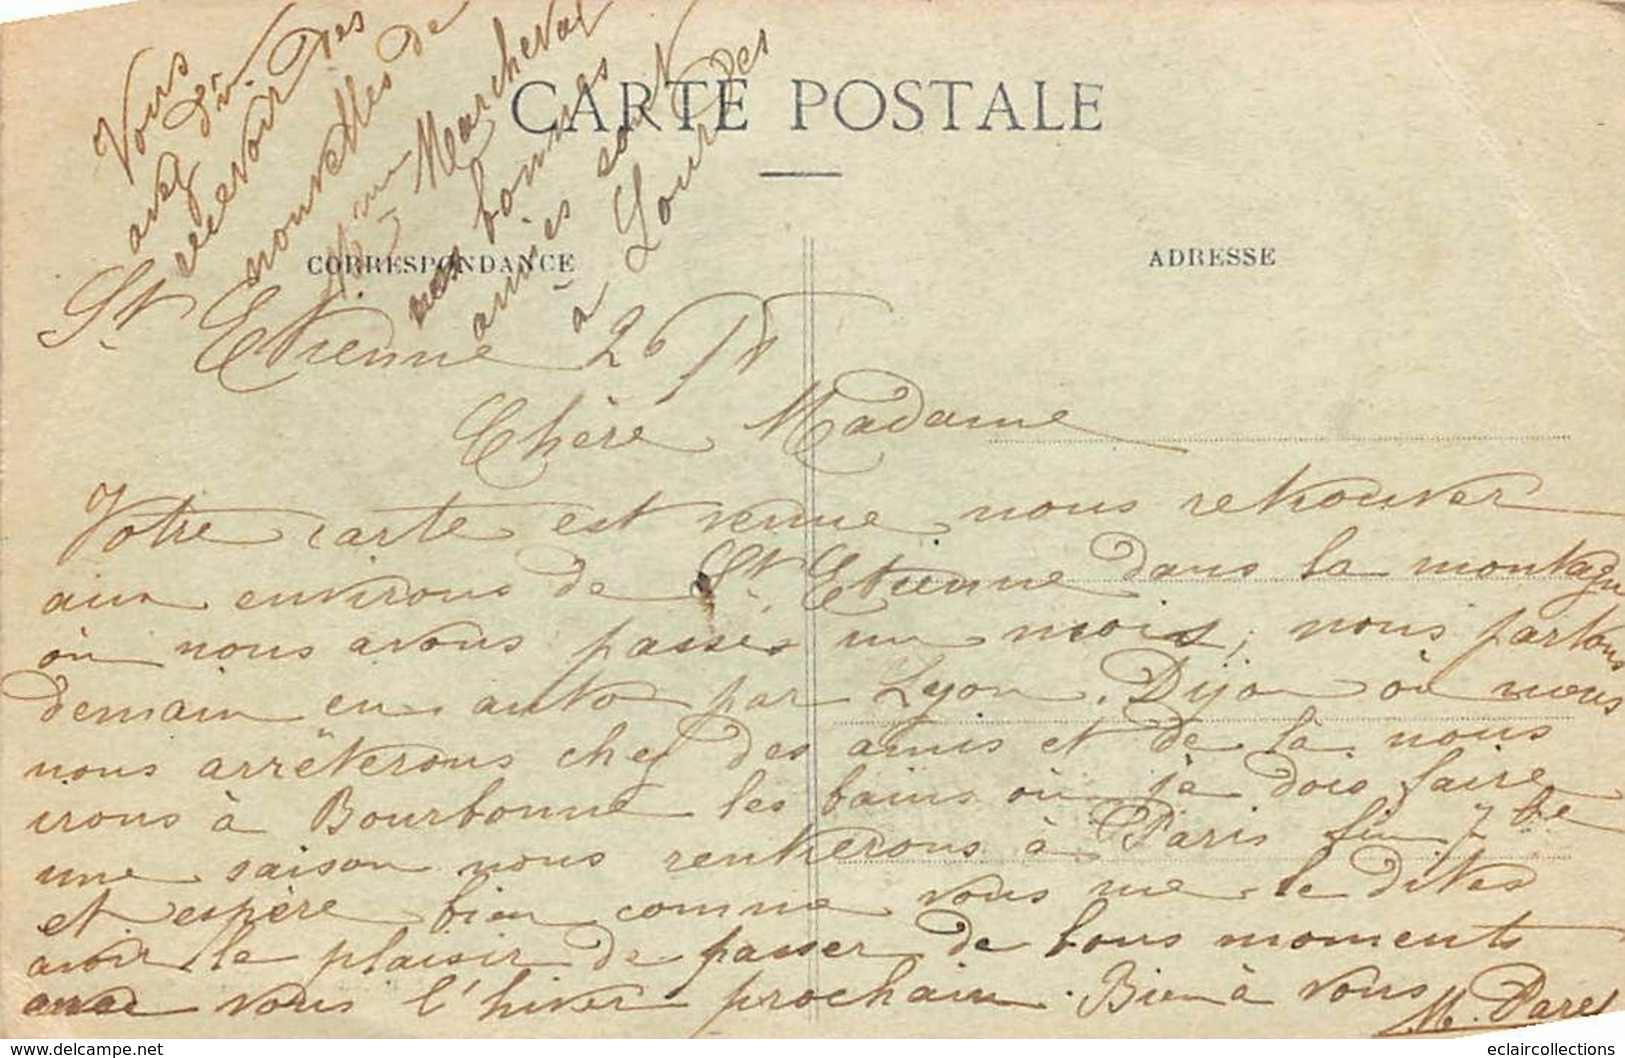 Vous
avez dû
recevoir des
nouvelles de
Mme Marcheval
nos bonnes
amies sont
à Lourdes
CARTE POSTALE
CORRESPONDANCE
ADRESSE
St Etienne 26/8
Chère Madame
Votre carte est venue nous retrouver
aux environs de St Etienne dans la montagne
où nous avons passés un mois, nous partons
demain en auto par Lyon, Dijon où nous
nous arrêterons chez des amis et de là nous
irons à Bourbonne les bains où je dois faire
une saison nous rentrerons à Paris fin 7bre
et espère bien comme vous me le dites
avoir le plaisir de passer de bons moments
avec vous l'hiver prochain. Bien à vous
M. Paret
eclair.charme.com
eclaircollections